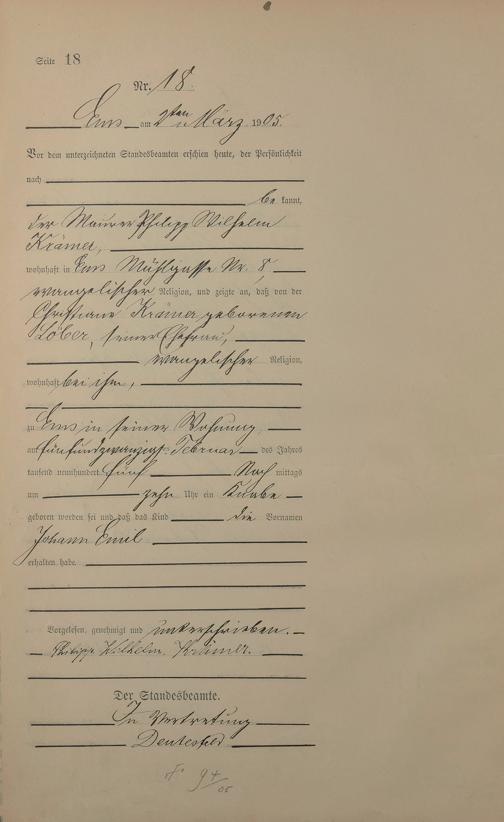 Seite 18
Nr. 18.
Ems am 2ten März 1905.
Vor dem unterzeichneten Standesbeamten erschien heute, der Persönlichkeit
nach
be kannt,
der Maurer Philipp Wilhelm
Krämer,
wohnhaft in Ems Mühlgasse Nr. 8,
evangelischer Religion, und zeigte an, daß von der
Christiane Krämer geborenen
Löber, seiner Ehefrau,
evangelischer Religion,
wohnhaft bei ihm,
zu Ems in seiner Wohnung
am fünfundzwanzigsten Februar des Jahres
tausend neunhundert fünf Nach mittags
um zehn Uhr ein Knabe
geboren worden sei und daß das Kind die Vornamen
Johann Emil
erhalten habe.
Vorgelesen, genehmigt und unterschrieben.
Philipp Wilhelm Krämer.
Der Standesbeamte.
In Vertretung